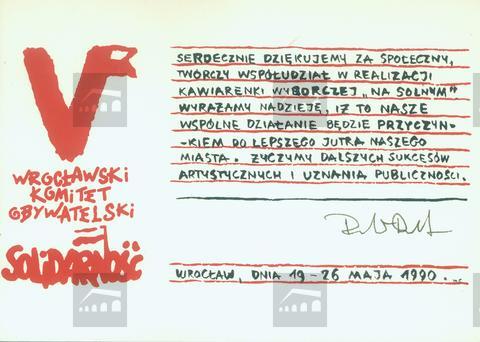 V
WROCŁAWSKI
KOMITET
OBYWATELSKI
SOLIDARNOŚĆ
SERDECZNIE DZIĘKUJEMY ZA SPOŁECZNY,
TWÓRCZY WSPÓŁUDZIAŁ W REALIZACJI
KAWIARENKI WYBORCZEJ „NA SOLNYM"
WYRAŻAMY NADZIEJĘ, IŻ TO NASZE
WSPÓLNE DZIAŁANIE BĘDZIE PRZYCZYN-
-KIEM DO LEPSZEGO JUTRA NASZEGO
MIASTA. ŻYCZYMY DALSZYCH SUKCESÓW
ARTYSTYCZNYCH I UZNANIA PUBLICZNOŚCI.
WROCŁAW, DNIA 19-26 MAJA 1990...